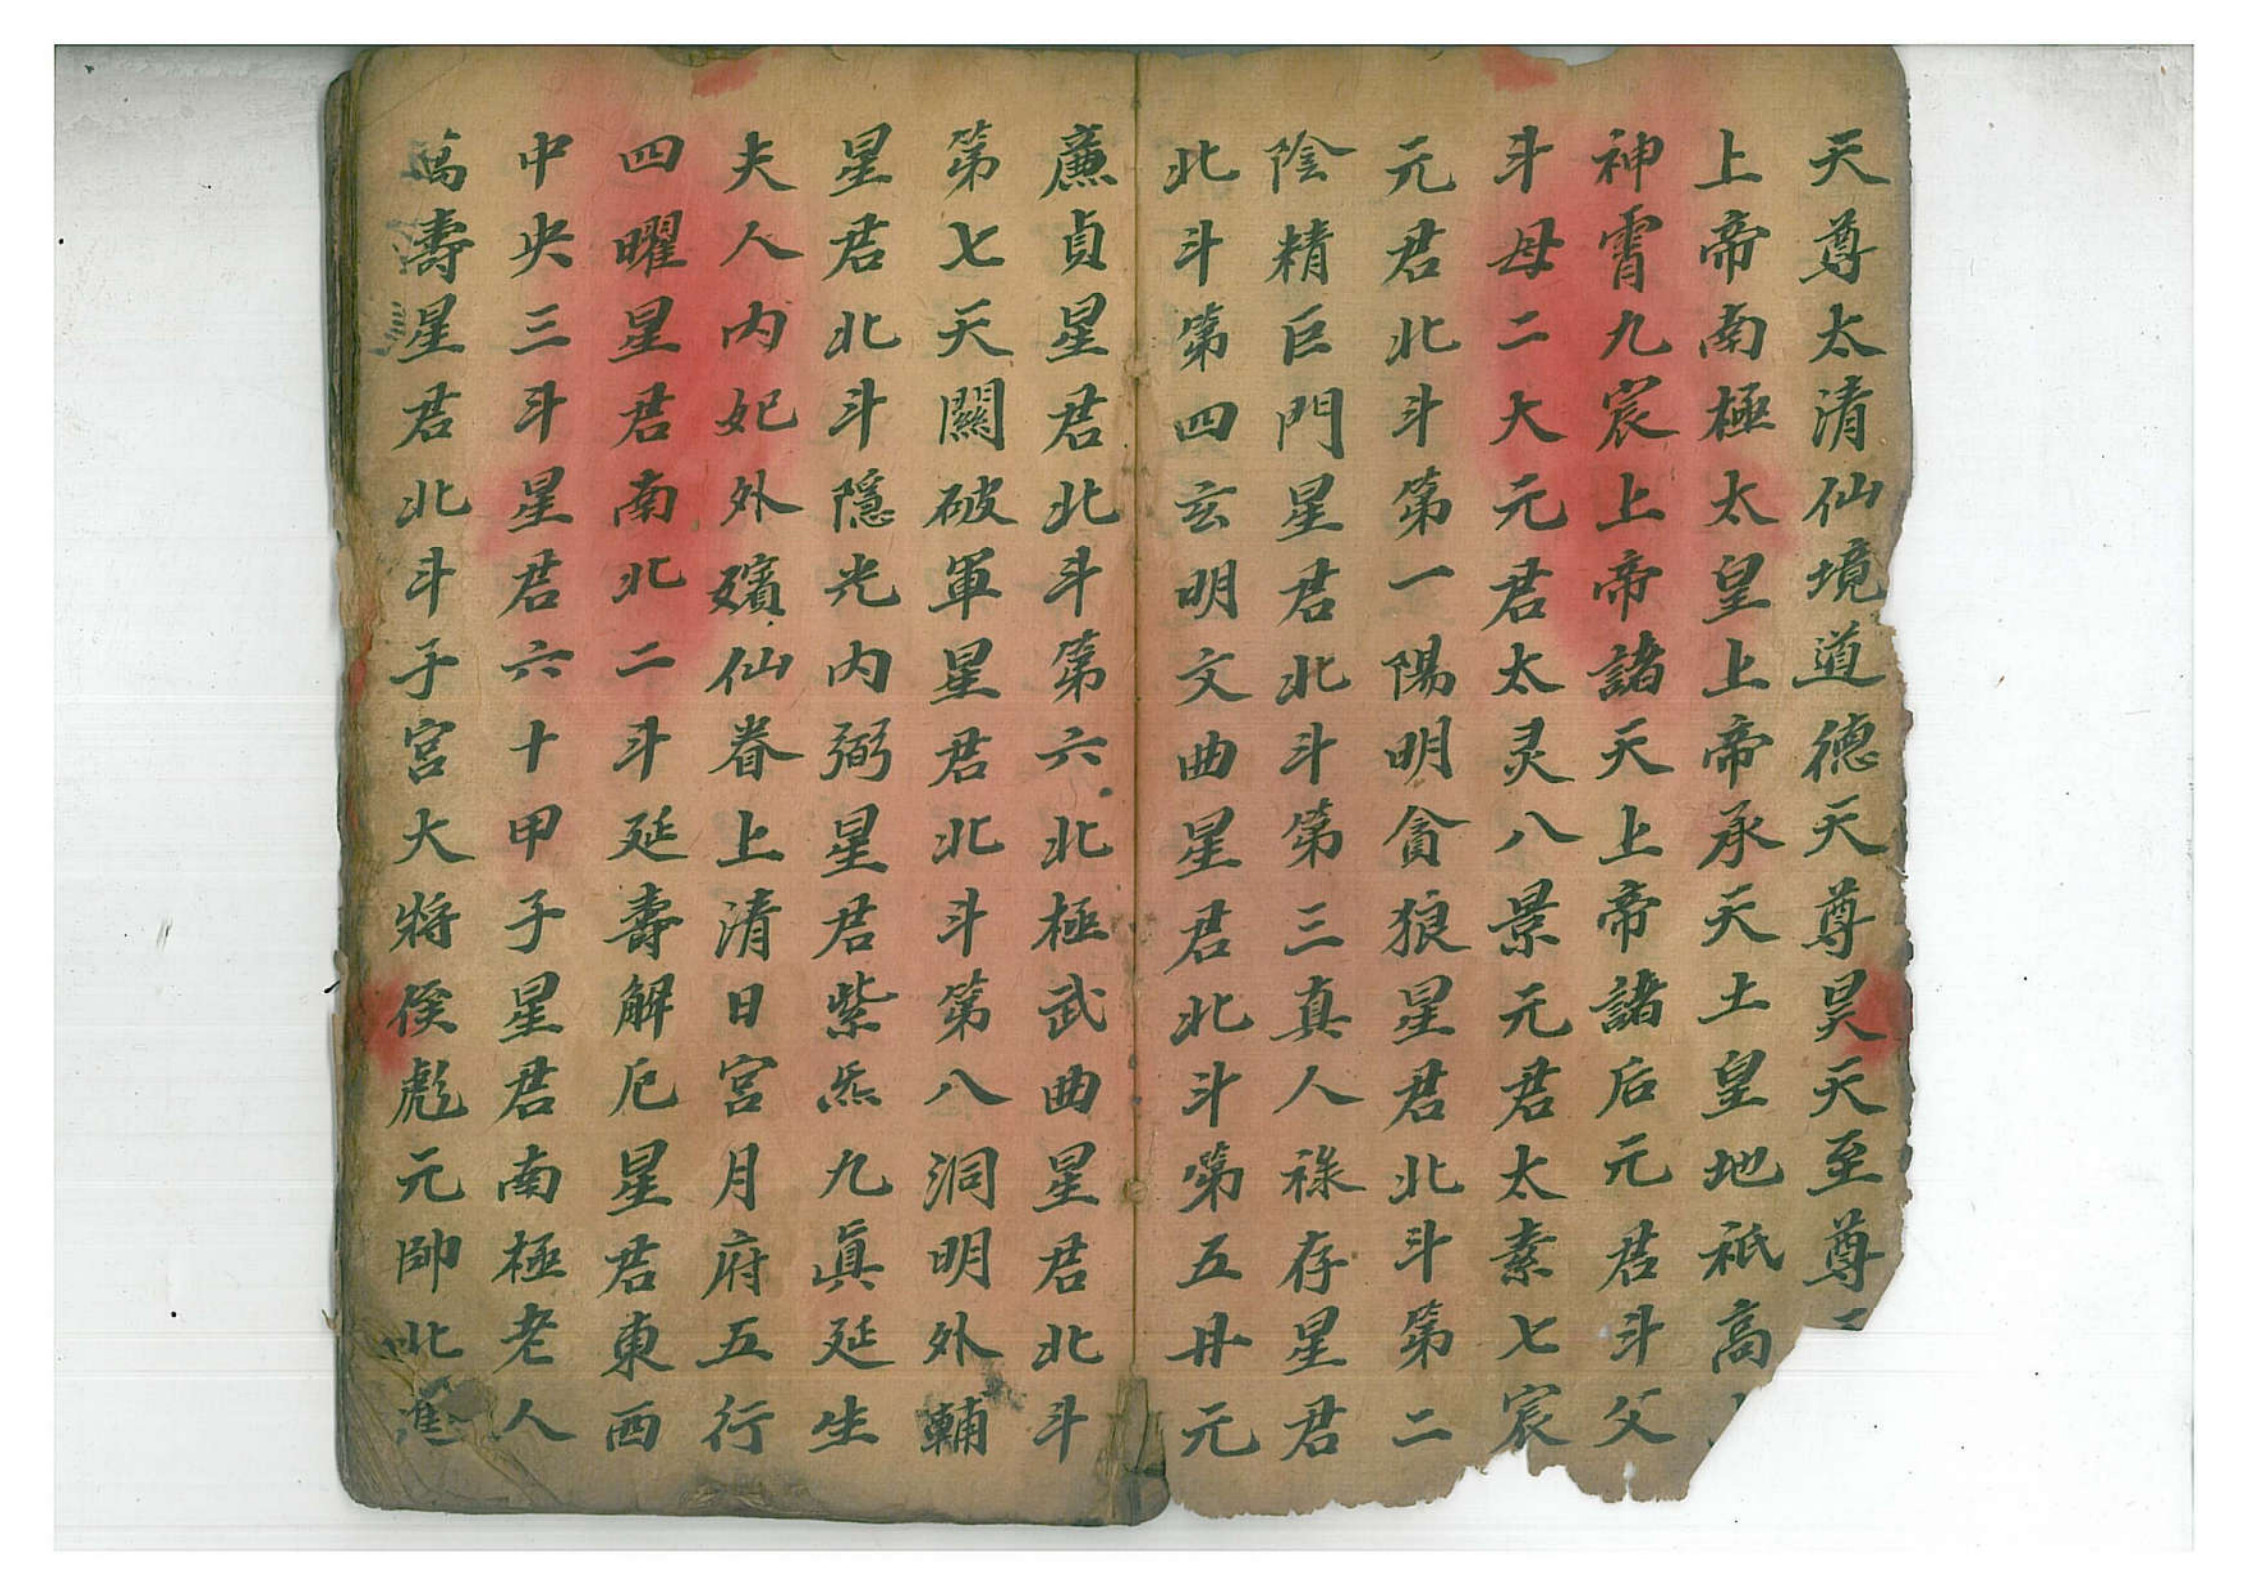 天尊太清仙境道德天尊昊天至尊
上帝南極太皇上帝承天土皇地祇高
神霄九宸上帝諸天上帝諸后元君斗父
斗母二大元君太灵八景元君太素七宸
元君北斗第一陽明貪狼星君北斗第二
陰精巨門星君北斗第三真人祿存星君
北斗第四玄明文曲星君北斗第五廾元
廉貞星君北斗第六北極武曲星君北斗
第七天關破軍星君北斗第八洞明外輔
星君北斗隱光内弼星君紫炁九眞延生
夫人内妃外嬪仙眷上清日宮月府五行
四曜星君南北二斗延壽解厄星君東西
中央三斗星君六十甲子星君南極老人
萬壽星君北斗子宮大將侯彪元帥北